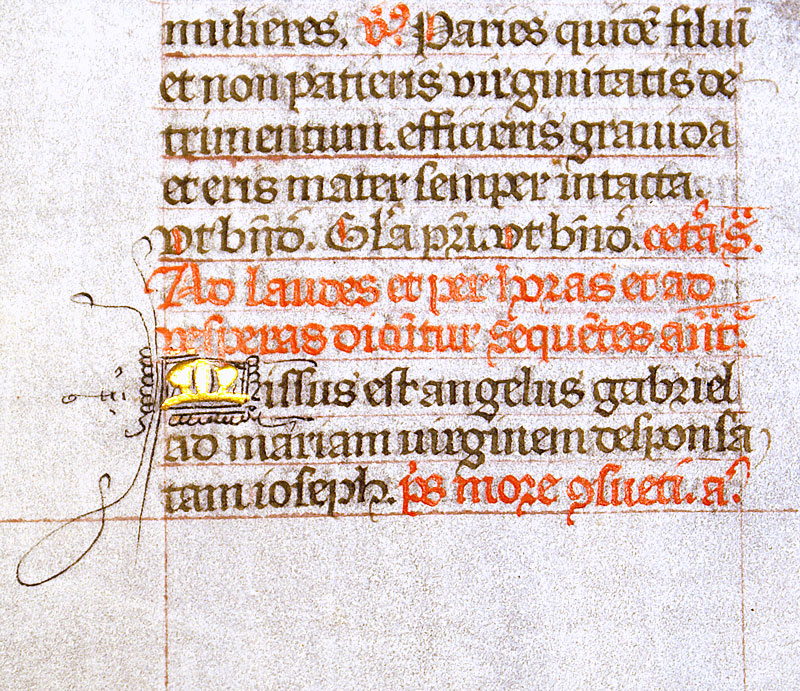 mulieres. v̄. Paries quidē filiū
et non patieris virginitatis de
trimentum. efficieris grauida
et eris mater semper intacta.
vt bn̄d. Glā pr̄i. vt bn̄d. cetā s̄.
Ad laudes et per horas et ad
vesperas dicūtur sequētes ant̄.
Missus est angelus gabriel
ad mariam uirginem desponsa
tam ioseph. p̄s more ꝯsueti. a.